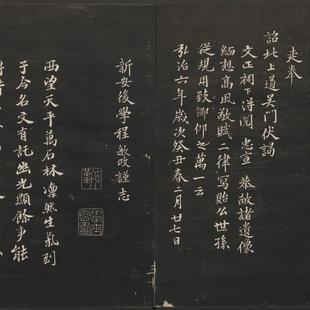 走奉
詔北上道吴門伏謁
文正祠下得閱 忠宣 恭獻諸遺像
緬想高風敬賦二律寫貽公世孫
從規用致仰之萬一云
弘治六年歲次癸丑春二月廿七日
新安後學程敏政謹志
西望天平萬石林凛然生氣到
于今名有託幽光顯餘事能